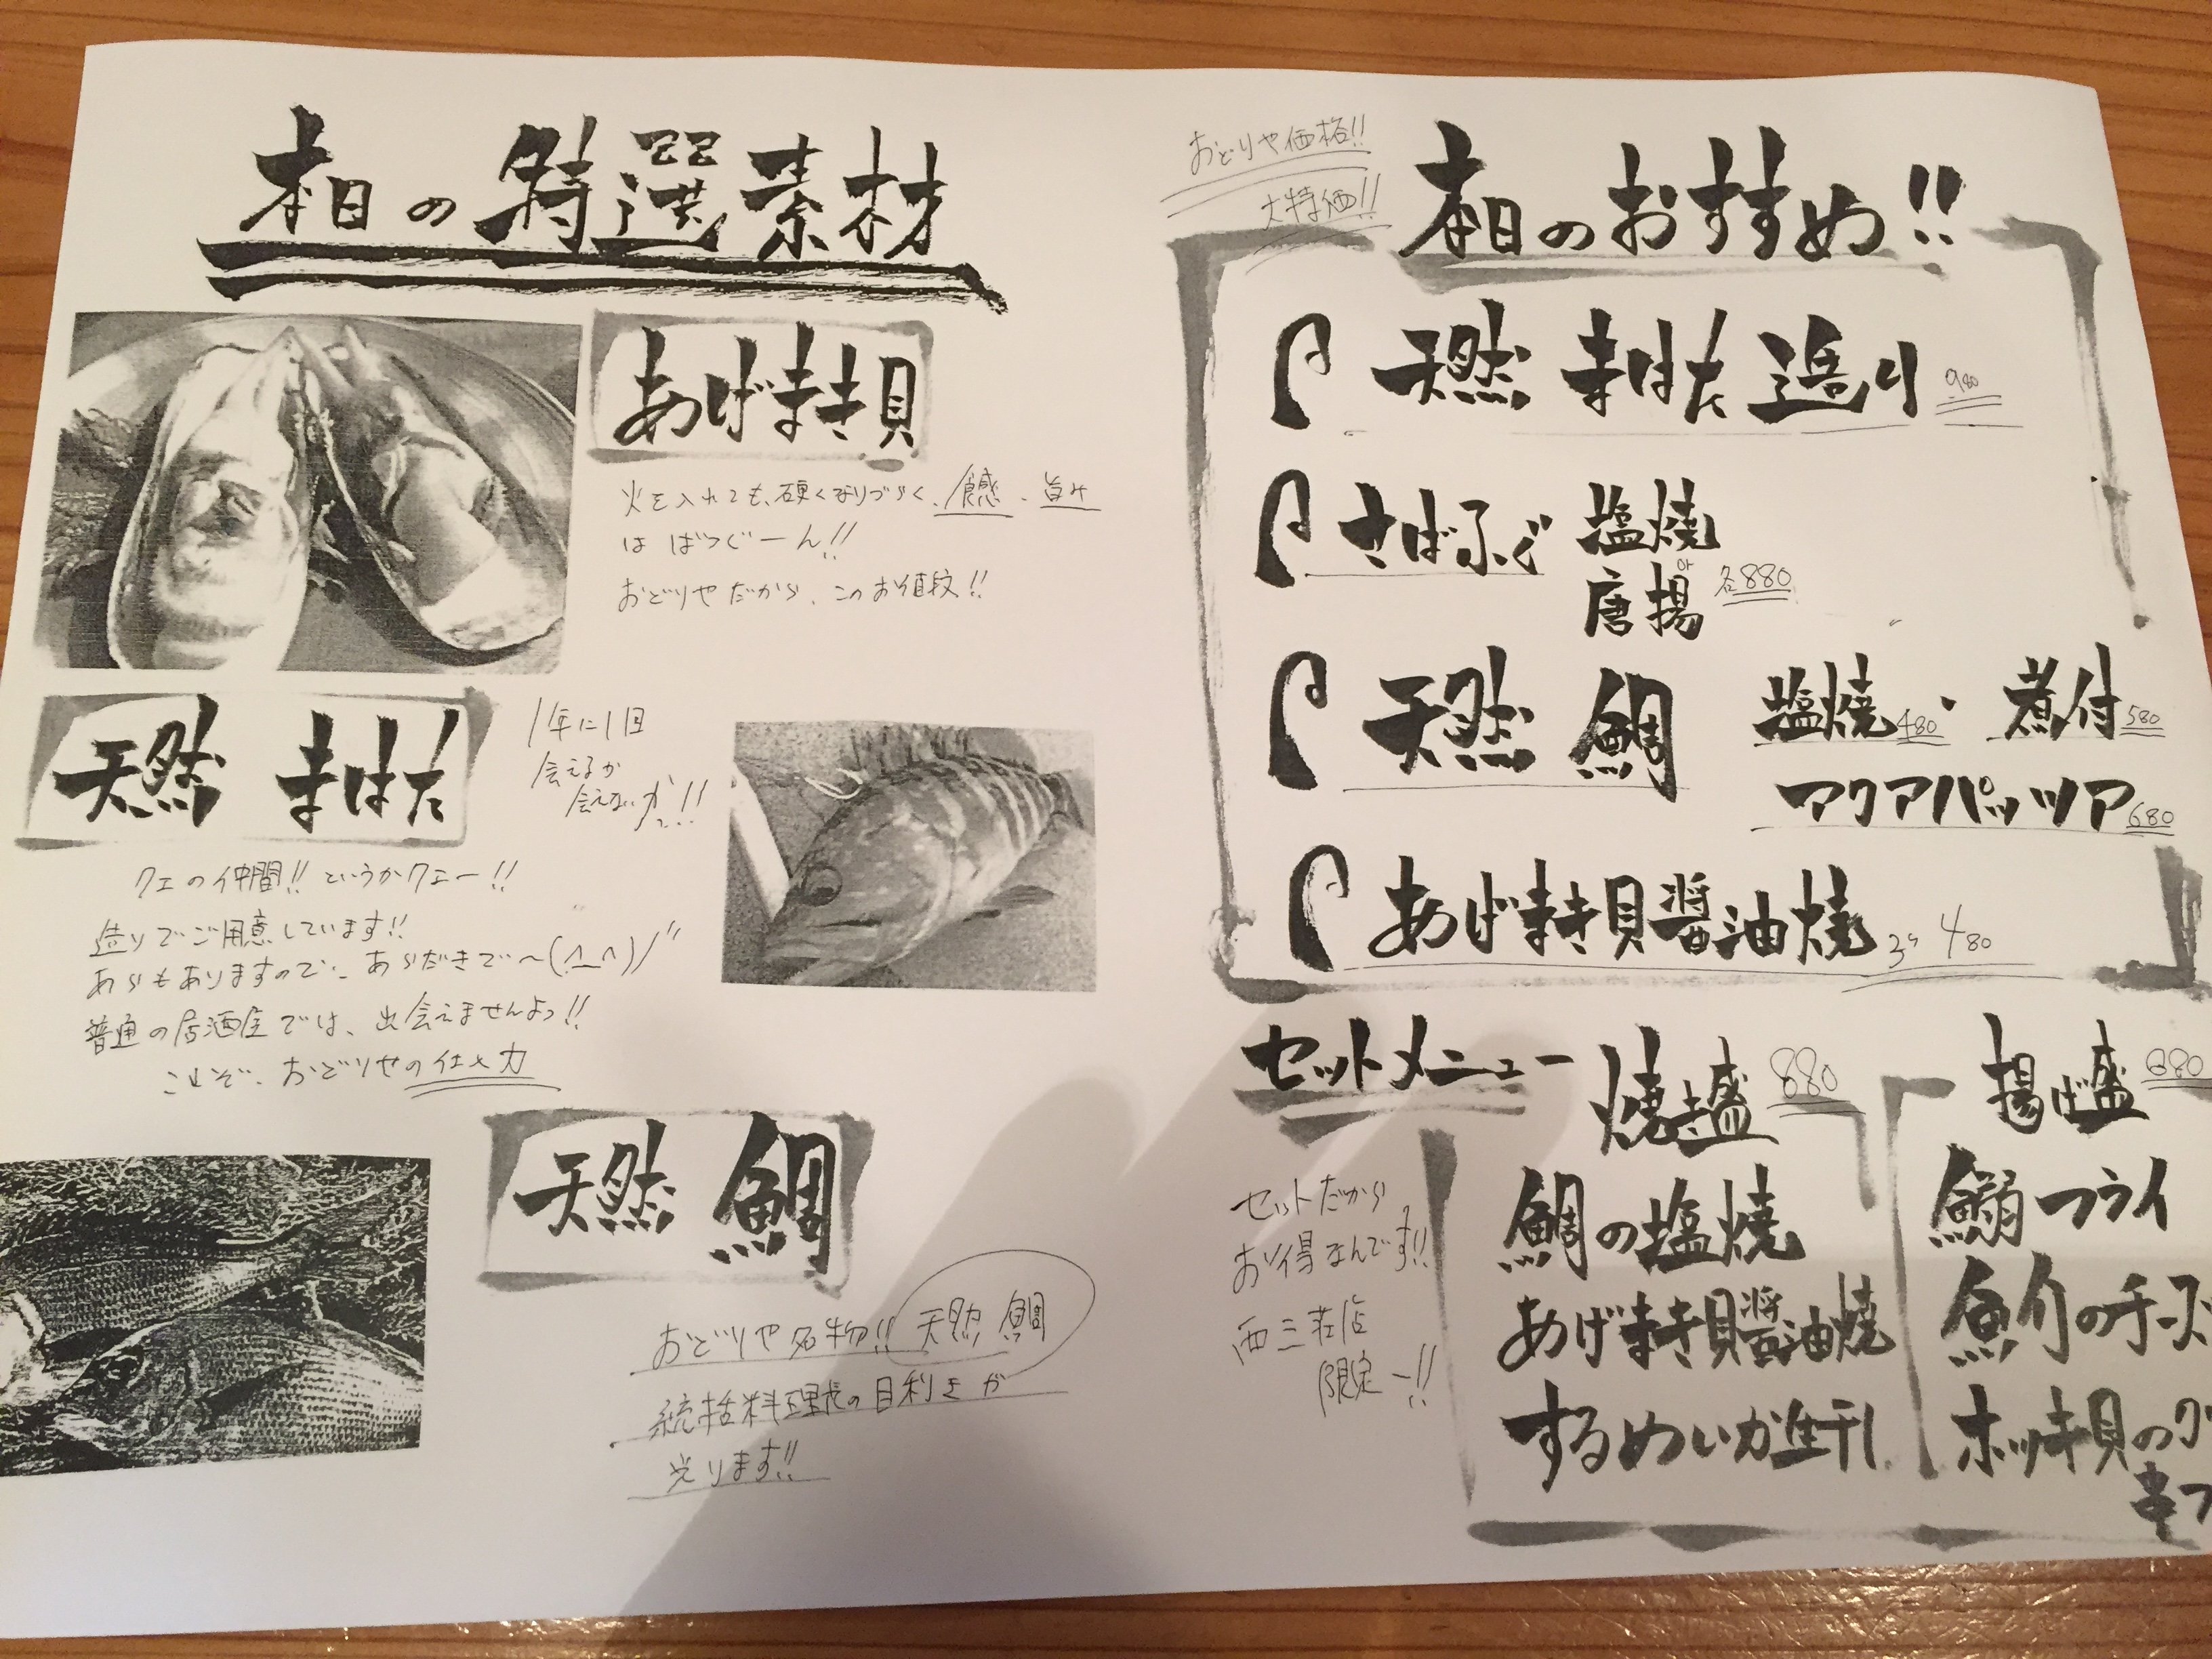 本日の特選素材
あげまき貝
火を入れても、硬くなりづらく、食感、旨み
は ばつぐーん!!
おどりやだから、このお値段!!
天然 まはた
1年に1回
会えるか
会えないか!!
クエの仲間!! というかクエー!!
造りでご用意しています!!
あらもありますので、あらだきで〜(^_^)/"
普通の居酒屋では、出会えませんよっ!!
これぞ、おどりやの仕入力
天然 鯛
おどりや名物!! 天然 鯛
統括料理長の目利きが
光ります!!
おどりや価格!!
大特価!!
本日のおすすめ!!
天然 まはた 造り 980
さばふぐ 塩焼
or
唐揚 各880
天然 鯛 塩焼480・煮付580
アクアパッツア680
あげまき貝醤油焼 3ケ 480
セットメニュー
セットだから
お得なんです!!
西三荘店
限定ー!!
焼き盛 880
鯛の塩焼
あげまき貝醤油焼
するめいか生干し
揚げ盛 880
鰯フライ
魚介のチーズ
ホッキ貝の
串フ